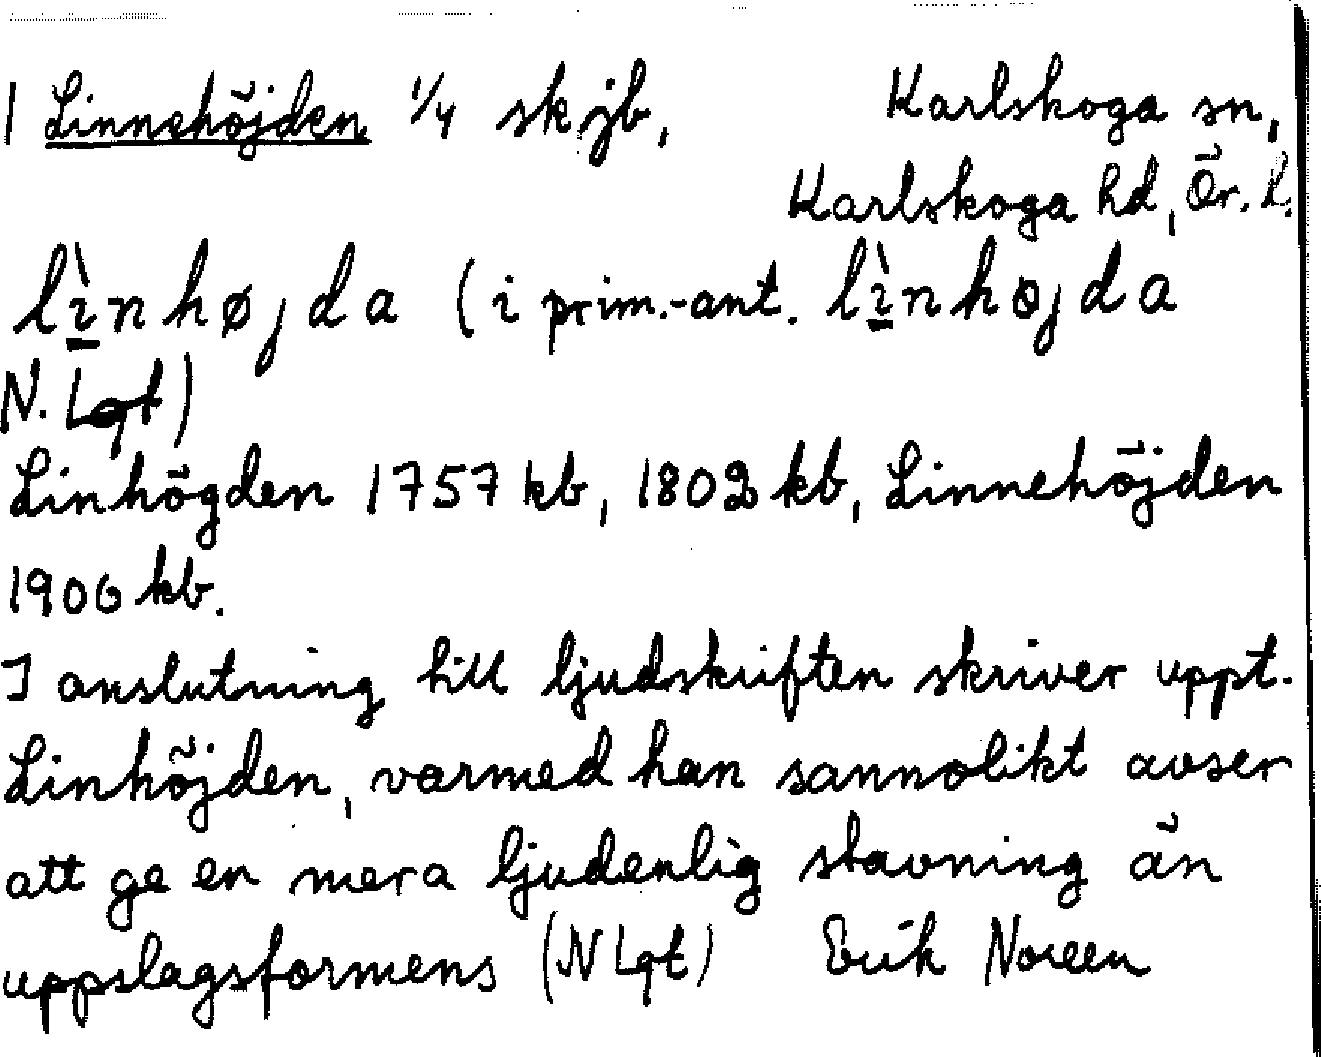 1 Linnehöjden 1/4 skjb, Karlskoga sn,
Karlskoga hd, Ör. l.
lìnhøjda (i prim.-ant. lìnhojda
N. Lqt)
Linhögden 1757 kb, 1802 kb, Linnehöjden
1906 kb.
I anslutning till ljudskriften skriver uppt.
Linhöjden, varmed han sannolikt avser
att ge en mera ljudenlig stavning än
uppslagsformens (N Lqt) Erik Noreen